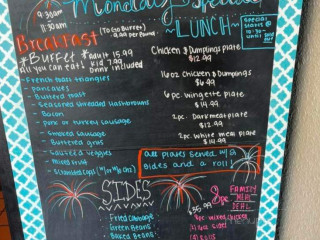 Monday Specials
9:30am
11:30am
(To Go Buffet)
9.99 per Pound
Breakfast
*Buffet*
all you can eat!
adult 15.99
Kid 7.99
Drink included
- French toast triangles
- pancakes
- Buttered toast
- Seasoned Smashed Hashbrowns
- Bacon
- Pork or turkey sausage
- Smoked Sausage
- Buttered grits
- Sauteed veggies
- Mixed fruit
- Scrambled eggs
~LUNCH~
Special
starts @
10:30
until
Chicken & Dumplings plate
$12.99
16oz Chicken & Dumplings
$6.99
6pc. Wingette plate
$14.99
2pc. Dark meat plate
$12.99
2pc. White meat plate
$14.99
All plates served w/ 2
sides and a roll!
SIDES
- Fried Cabbage
- Green Beans
- Baked Beans
8pc
FAMILY
MEAL
DEAL
$35.99
(4) rolls